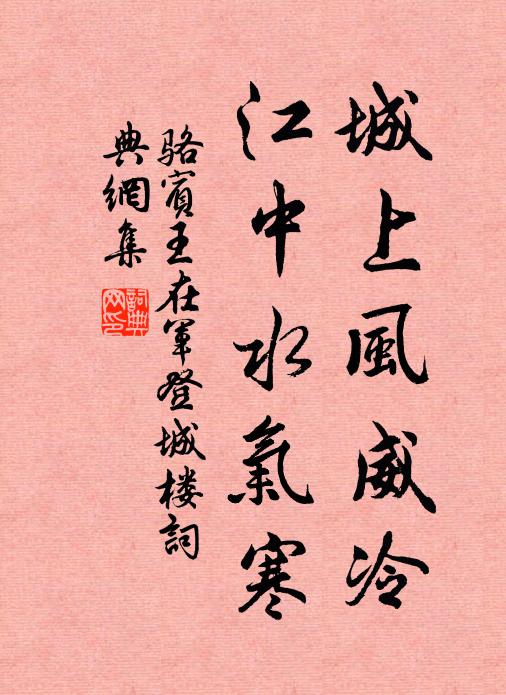 城上風威冷
江中水氣寒
駱賓王在軍登城楼詞
典網集
詞典
网印